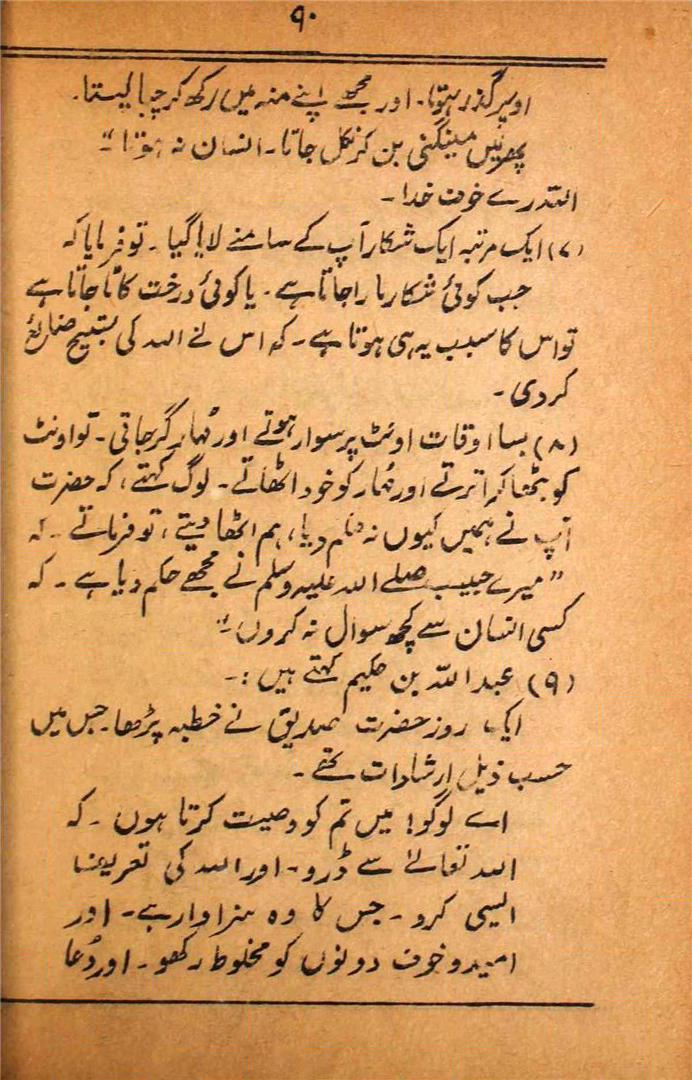 ۹۰
اوپر گذر ہوتا۔ اور مجھے اپنے منہ میں رکھ کر چبا لیتا۔
پھر میں مینگنی بن کر نکل جاتا۔ انسان نہ ہوتا"
اللہ رے خوف خدا۔
(۷) ایک مرتبہ ایک شکار آپ کے سامنے لایا گیا۔ تو فرمایا کہ
جب کوئی شکار مارا جاتا ہے۔ یا کوئی درخت کاٹا جاتا ہے
تو اس کا سبب یہ ہی ہوتا ہے۔ کہ اس نے اللہ کی تسبیح ضائع
کر دی۔
(۸) بسا اوقات اونٹ پر سوار ہوتے اور مُہار گر جاتی۔ تو اونٹ
کو بٹھا کر اترتے اور مُہار کو خود اٹھاتے۔ لوگ کہتے، کہ حضرت
آپ نے ہمیں کیوں نہ حکم دیا، ہم اٹھا دیتے، تو فرماتے۔ کہ
"میرے حبیب صلے اللہ علیہ وسلم نے مجھے حکم دیا ہے۔ کہ
کسی انسان سے کچھ سوال نہ کروں۔"
(۹) عبد اللہ بن حکیم کہتے ہیں:۔
ایک روز حضرت صدیق نے خطبہ پڑھا۔ جس میں
حسب ذیل ارشادات تھے۔
اے لوگو! میں تم کو وصیت کرتا ہوں۔ کہ
اللہ تعالےٰ سے ڈرو۔ اور اللہ کی تعریف
ایسی کرو۔ جس کا وہ سزاوار ہے۔ اور
امید و خوف دونوں کو مخلوط رکھو۔ اور دُعا